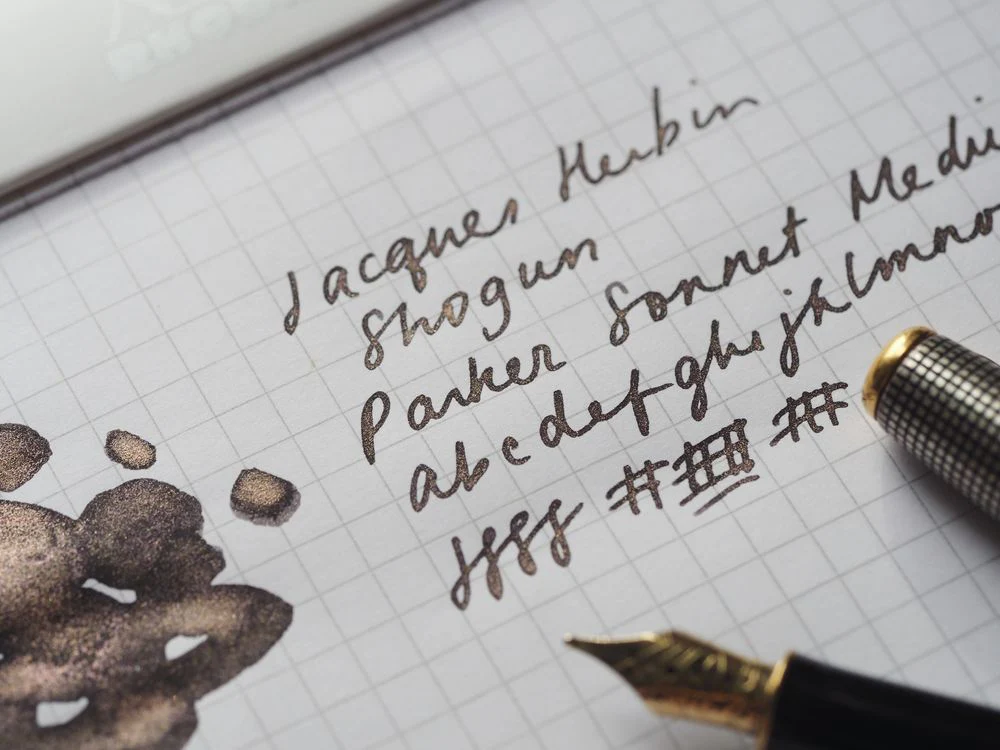 Jacques Herbin
Shogun
Parker Sonnet Mediu
abcdefghijklmno